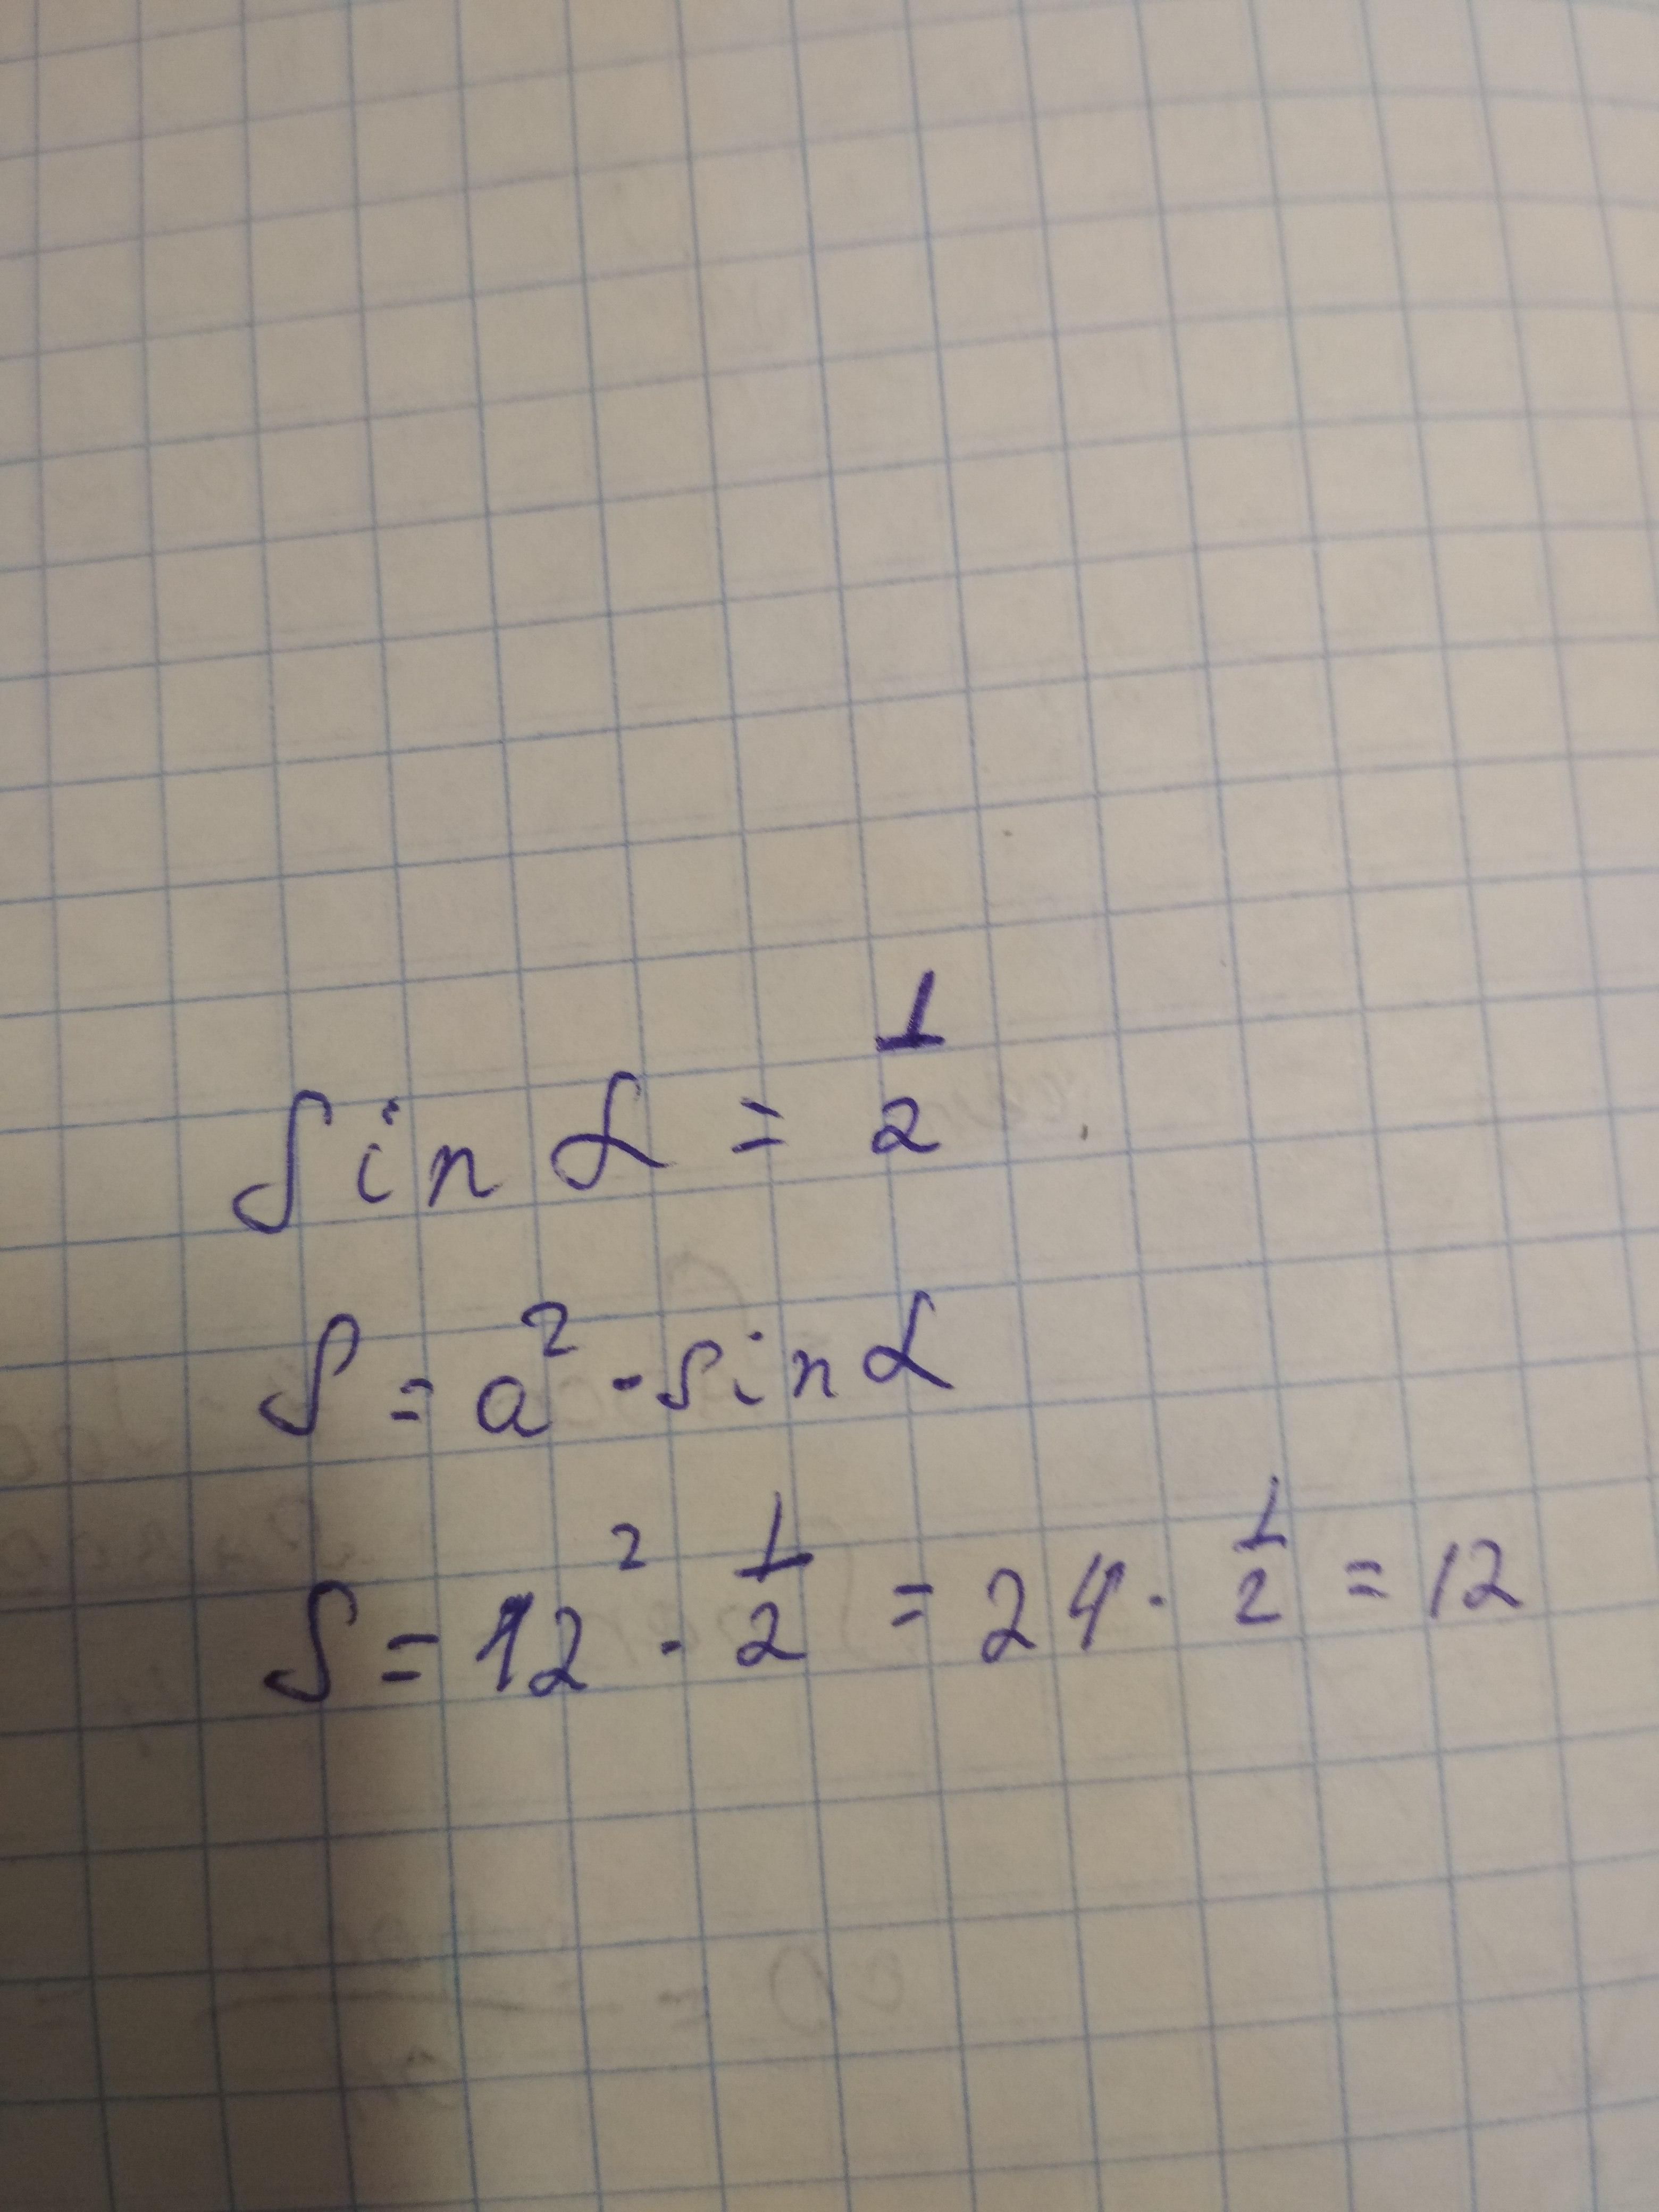 sin α = 1/2
S = a² · sin α
S = 12² · 1/2 = 24 · 1/2 = 12